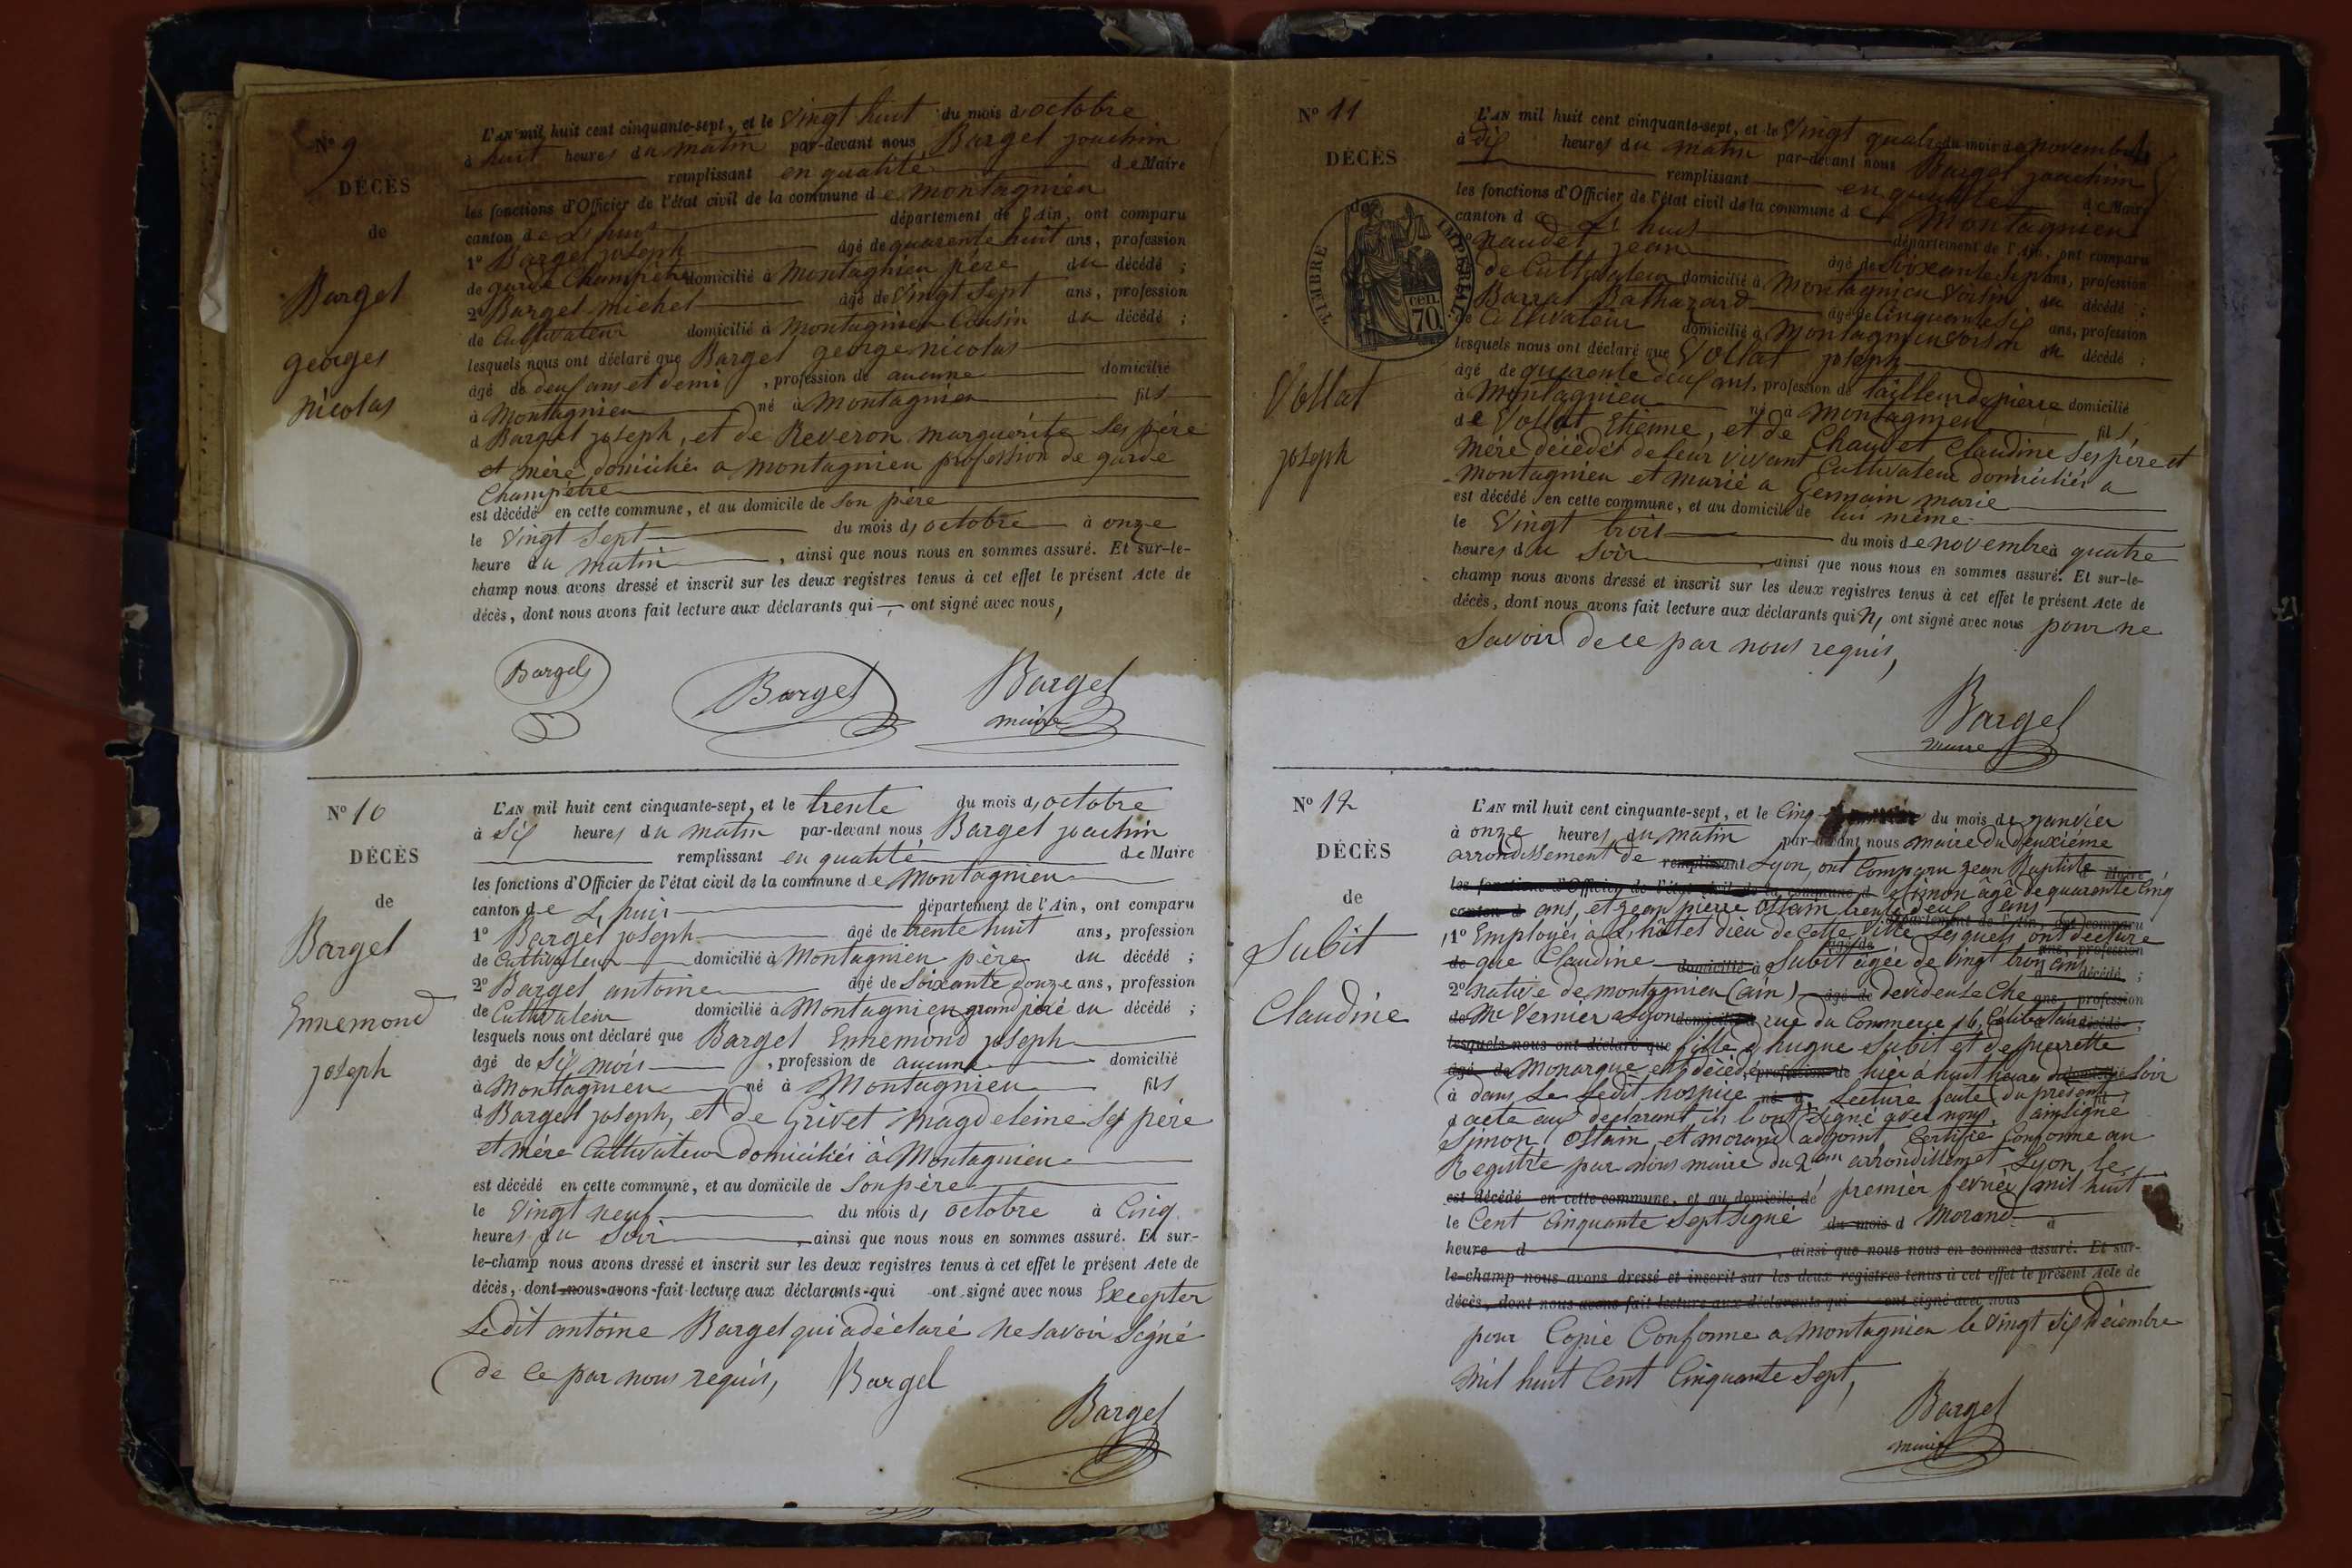 N° 9
DÉCÈS
de
Bargel
georges
nicolas
L'AN mil huit cent cinquante-sept, et le vingt huit du mois d'octobre
à huit heures du matin par-devant nous Bargel joachim
remplissant en qualité de Maire
les fonctions d'Officier de l'état civil de la commune de montagnieu
canton de Lhuis département de l'Ain, ont comparu
1° Bargel joseph âgé de quarente huit ans, profession
de garde Champêtre domicilié à Montagnieu père du décédé ;
2° Bargel michel âgé de vingt sept ans, profession
de Cultivateur domicilié à Montagnieu Cousin du décédé ;
lesquels nous ont déclaré que Bargel george nicolas
âgé de deux ans et demi, profession de aucune domicilié
à Montagnieu né à Montagnieu fils
d Bargel joseph, et de Reveron marguerite ses père
et mère domiciliés a montagnieu profession de garde
Champêtre
est décédé en cette commune, et au domicile de son père
le vingt sept du mois d'octobre à onze
heure du matin, ainsi que nous nous en sommes assuré. Et sur-le-
champ nous avons dressé et inscrit sur les deux registres tenus à cet effet le présent Acte de
décès, dont nous avons fait lecture aux déclarants qui ont signé avec nous,
Bargel Bargel Bargel
maire
N° 10
DÉCÈS
de
Bargel
Ennemond
joseph
L'AN mil huit cent cinquante-sept, et le trente du mois d'octobre
à six heures du matin par-devant nous Bargel joachim
remplissant en qualité de Maire
les fonctions d'Officier de l'état civil de la commune de Montagnieu
canton de Lhuis département de l'Ain, ont comparu
1° Bargel joseph âgé de trente huit ans, profession
de Cultivateur domicilié à Montagnieu père du décédé ;
2° Bargel antoine âgé de soixante onze ans, profession
de Cultivateur domicilié à Montagnieu grand père du décédé ;
lesquels nous ont déclaré que Bargel Ennemond joseph
âgé de six mois, profession de aucune domicilié
à Montagnieu né à Montagnieu fils
d Bargel joseph, et de Grivet magdeleine ses père
et mère Cultivateur domiciliés à Montagnieu
est décédé en cette commune, et au domicile de son père
le vingt neuf du mois d'octobre à Cinq
heures du soir, ainsi que nous nous en sommes assuré. Et sur-
le-champ nous avons dressé et inscrit sur les deux registres tenus à cet effet le présent Acte de
décès, dont nous avons fait lecture aux déclarants qui ont signé avec nous Excepter
Ledit antoine Bargel qui a déclaré ne savoir signé
de ce par nous requis, Bargel
Bargel
N° 11
DÉCÈS
de
TIMBRE IMPÉRIAL
cen. 70
Vollat
joseph
L'AN mil huit cent cinquante-sept, et le vingt quatre du mois de novembre
à dix heures du matin par-devant nous Bargel joachim
remplissant en qualité de Maire
les fonctions d'Officier de l'état civil de la commune de Montagnieu
canton d Lhuis département de l'Ain, ont comparu
1° naudet jean âgé de soixante sept ans, profession
de Cultivateur domicilié à Montagnieu voisin du décédé ;
2° Barral Balthazard âgé de cinquante six ans, profession
de Cultivateur domicilié à Montagnieu voisin du décédé ;
lesquels nous ont déclaré que Vollat joseph
âgé de quarente deux ans, profession de tailleur de pierre domicilié
à Montagnieu né à Montagnieu fils
de Vollat Etienne, et de Chauvet Claudine ses père et
mère décédés de leur vivant Cultivateur domiciliés a
Montagnieu et marié a Germain marie
est décédé en cette commune, et au domicile de lui même
le vingt trois du mois de novembre à quatre
heures du soir, ainsi que nous nous en sommes assuré. Et sur-le-
champ nous avons dressé et inscrit sur les deux registres tenus à cet effet le présent Acte de
décès, dont nous avons fait lecture aux déclarants qui n' ont signé avec nous pour ne
savoir de ce par nous requis,
Bargel
maire
N° 12
DÉCÈS
de
Subit
Claudine
L'AN mil huit cent cinquante-sept, et le Cinq du mois de janvier
à onze heures du matin par-devant nous maire du deuxième
arrondissement de remplissant Lyon, ont Comparu jean Baptiste Maire
les fonctions d'Officier de l'état civil de la commune d Simon âgé de quarente Cinq
canton d ans, et jean pierre Ostain trente deux ans département de l'Ain, ont comparu
1° Employés à L'hôtel dieu de Cette ville Lesquels ont declaré
de que Claudine domicilié à Subit âgée de vingt trois ans décédé ;
2° native de montagnieu (ain) âgé de devideuse Chez ans, profession
de Mr Vernier a Lyon domicilié à rue du Commerce 16, Celibataire décédé ;
lesquels nous ont déclaré que fille d hugue Subit et de pierrette
âgé de Monarque est décédée profession de hier a huit heures du domicilié soir
à dans Le Ledit hospice né à Lecture faite du présent fil
d acte aux declarant ils l'ont signé avec nous, ainsi signé
Simon, Ostain, et morand adjoint, Certifié Conforme au
Registre par nous maire du 2em arrondissemet Lyon le
est décédé en cette commune, et au domicile de premier fevrier mil huit
le Cent Cinquante sept signé du mois d Morand à
heure d, ainsi que nous nous en sommes assuré. Et sur-
le-champ nous avons dressé et inscrit sur les deux registres tenus à cet effet le présent Acte de
décès, dont nous avons fait lecture aux déclarants qui ont signé avec nous
pour Copie Conforme a Montagnieu le vingt six Décembre
mil huit Cent Cinquante sept,
Bargel
maire